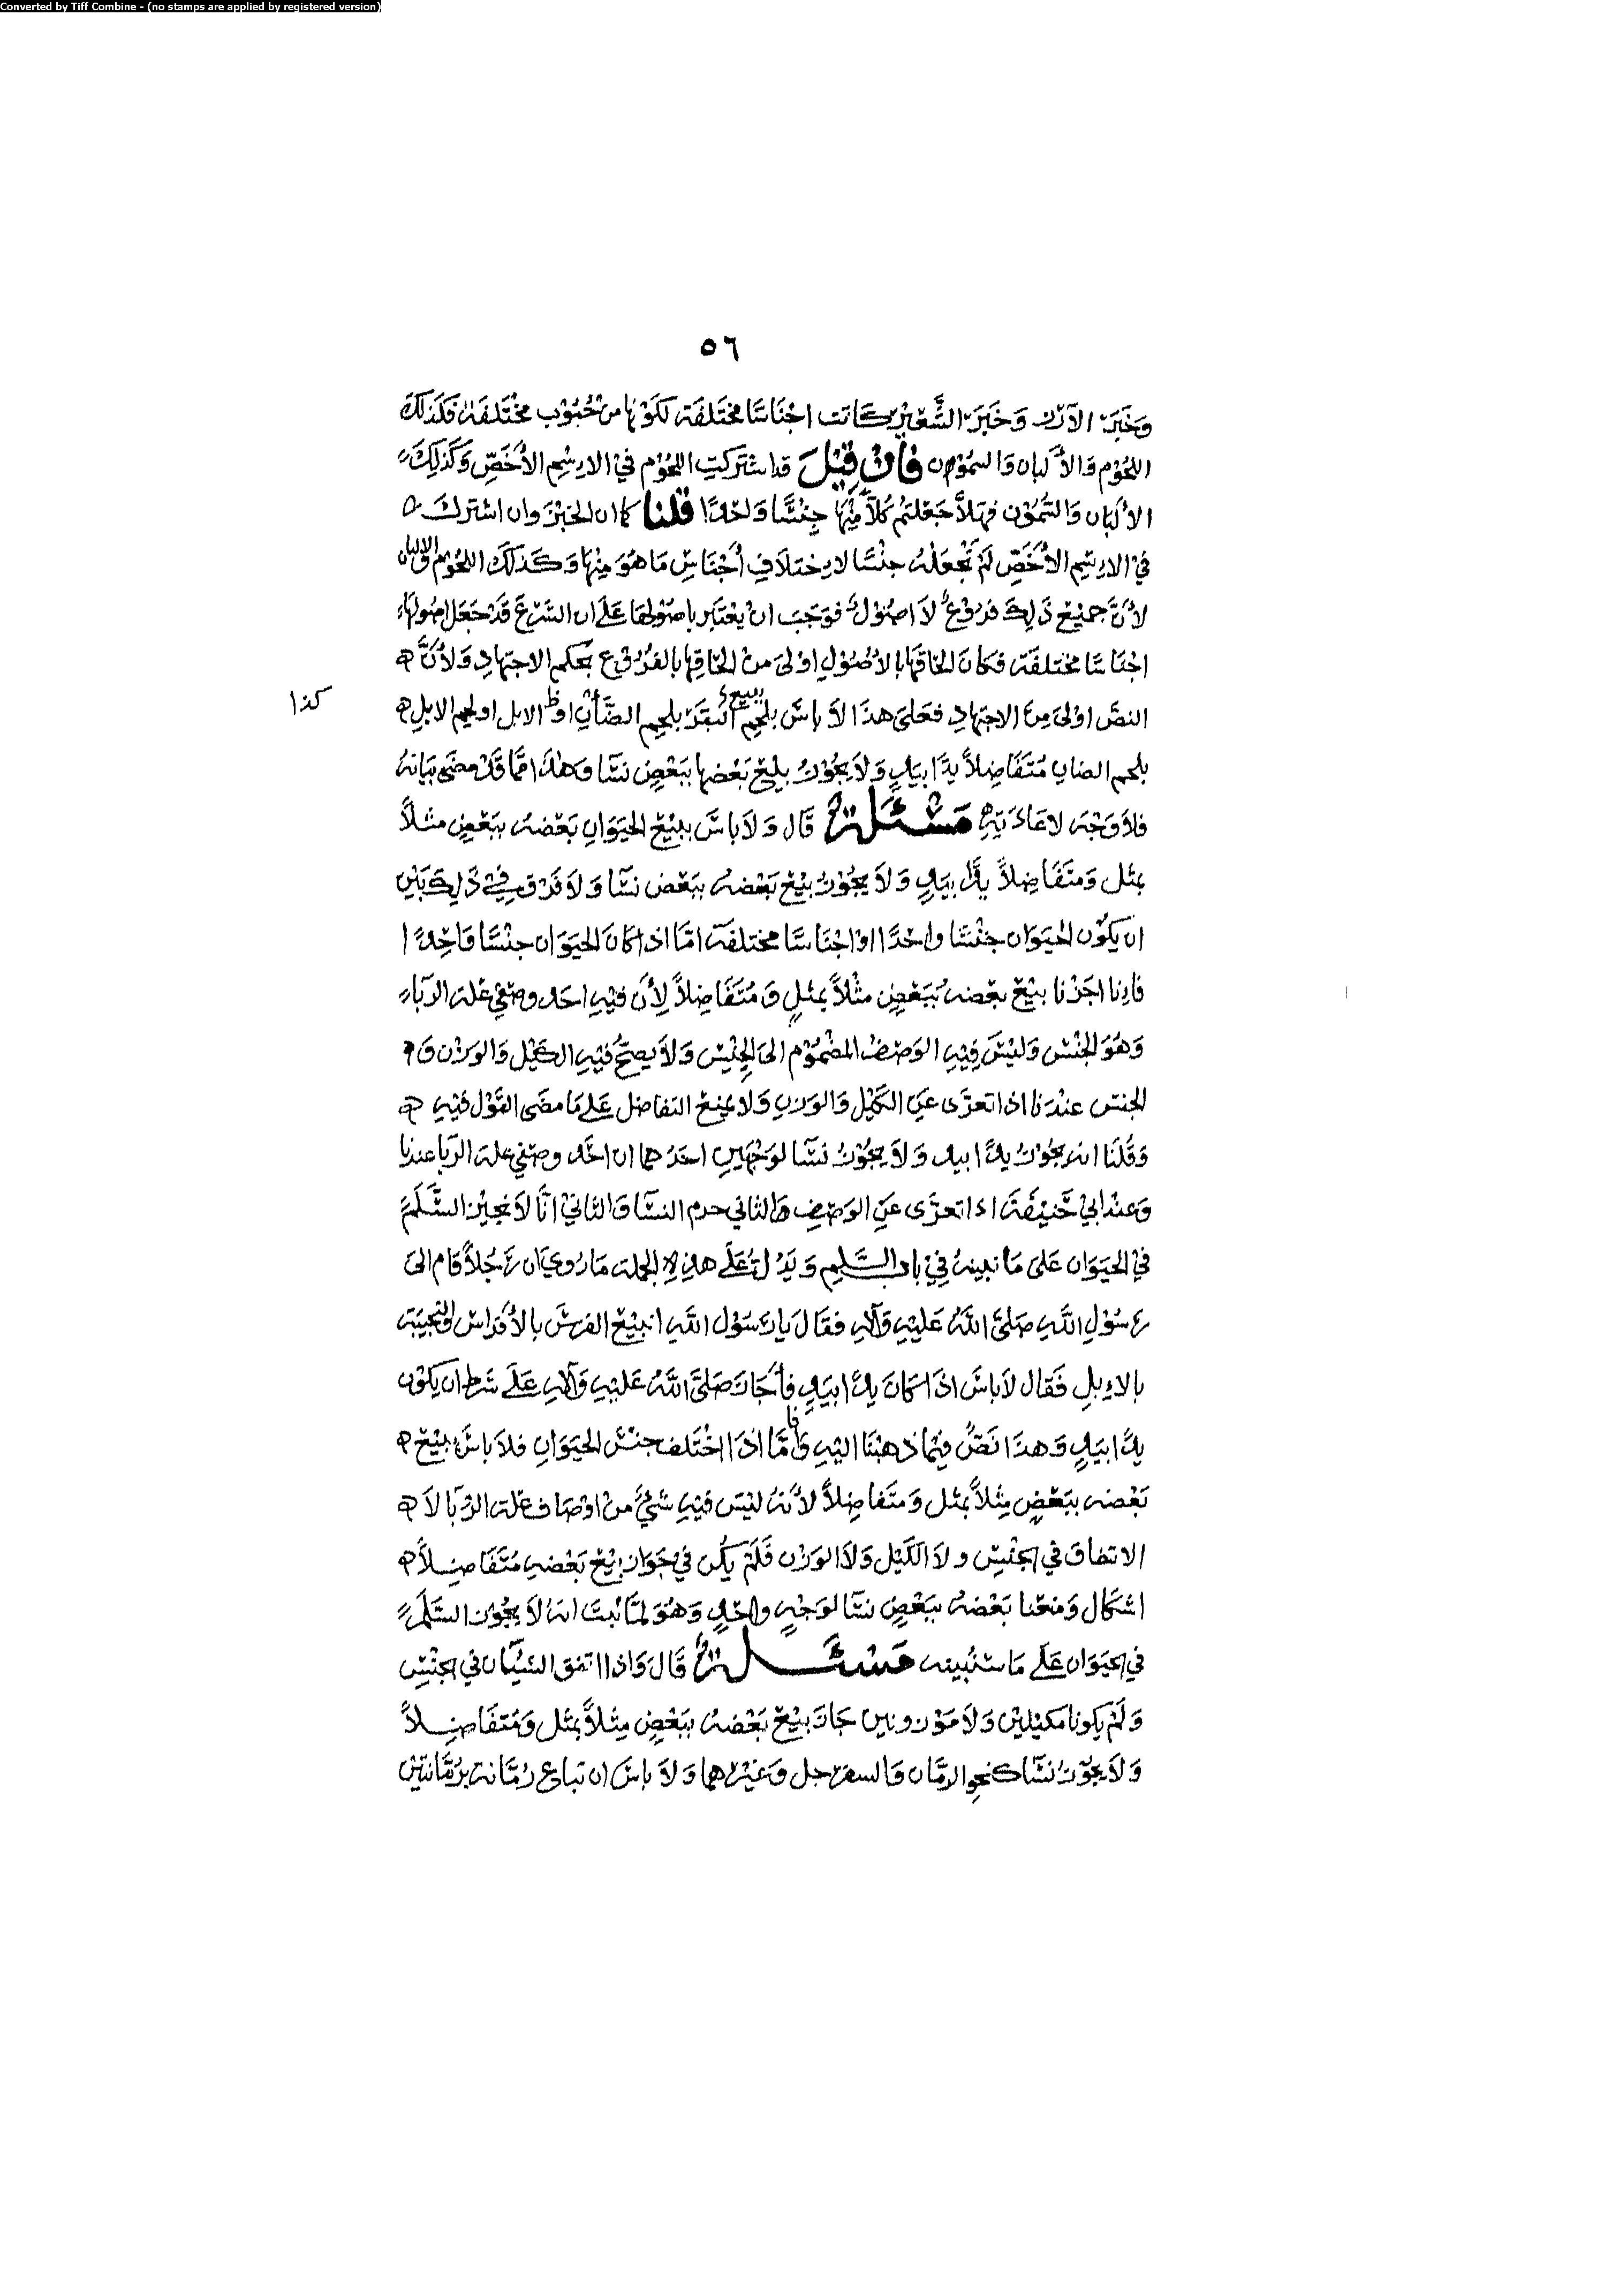 Converted by Tiff Combine - (no stamps are applied by registered version)
٥٦
وخبز الارز وخبز الشعير كانت اجناسا مختلفة لكونها من حبوب مختلفة فكذلك
اللحوم والألبان والسمون فان قيل قد اشتركت اللحوم في الاسم الأخص وكذلك
الألبان والسمون فهلا جعلتم كلا منها جنسا واحدا قلنا كما ان الخبز وان اشترك
في الاسم الأخص لم نجعله جنسا لاختلاف أجناس ما هو منها وكذلك اللحوم والالبان
لأن جميع ذلك فروع لا اصول فوجب ان يعتبر باصولها على ان الشرع قد جعل اصولها
اجناسا مختلفة فكان الحاقها بالأصول اولى من الحاقها بالفروع بحكم الاجتهاد ولأن
النص اولى من الاجتهاد فعلى هذا لا باس ببيع لحم البقر بلحم الضأن او الابل او لحم الابل
كذا
بلحم الضان متفاضلا يدا بيد ولا يجوز بيع بعضها ببعض نسا وهذا مما قد مضى بيانه
فلا وجه لاعادته مسئلة قال ولا باس ببيع الحيوان بعضه ببعض مثلا
بمثل ومتفاضلا يدا بيد ولا يجوز بيع بعضه ببعض نسا ولا فرق في ذلك بين
ان يكون الحيوان جنسا واحدا او اجناسا مختلفة اما اذا كان الحيوان جنسا واحدا
فإنا اجزنا بيع بعضه ببعض مثلا بمثل ومتفاضلا لأن فيه احد وصفي علة الربا
وهو الجنس وليس فيه الوصف المضموم الى الجنس ولا يصح فيه الكيل والوزن و
الجنس عندنا اذا تعرى عن الكيل والوزن ولا يمنع التفاضل على ما مضى القول فيه
وقلنا انه يجوز يدا بيد ولا يجوز نسا لوجهين احدهما ان احد وصفي علة الربا عندنا
وعند ابي حنيفة اذا تعرى عن الوصف والثاني حرم النسا والثاني انا لا نجيز السلم
في الحيوان على ما نبينه في باب السلم ويدل على هذه الجملة ما روي ان رجلا قام الى
رسول الله صلى الله عليه وآله فقال يا رسول الله انبيع الفرس بالأفراس والنجيبة
بالإبل فقال لا باس اذا كان يدا بيد فأجاز صلى الله عليه وآله على شرط ان يكون
يدا بيد وهذا نص فيما ذهبنا اليه فاما اذا اختلف جنس الحيوان فلا باس ببيع
بعضه ببعض مثلا بمثل ومتفاضلا لأنه ليس فيه شيء من اوصاف علة الربا لا
الاتفاق في الجنس ولا الكيل ولا الوزن فلم يكن في جواز بيع بعضه متفاضلا
اشكال ومنعنا بعضه ببعض نسا لوجه واحد وهو لما ثبت انه لا يجوز السلم
في الحيوان على ما سنبينه مسئلة قال واذا اتفق الشيئان في الجنس
ولم يكونا مكيلين ولا موزونين جاز بيع بعضه ببعض مثلا بمثل ومتفاضلا
ولا يجوز نسا كنحو الرمان والسفرجل وغيرهما ولا باس ان تباع رمانة برمانتين